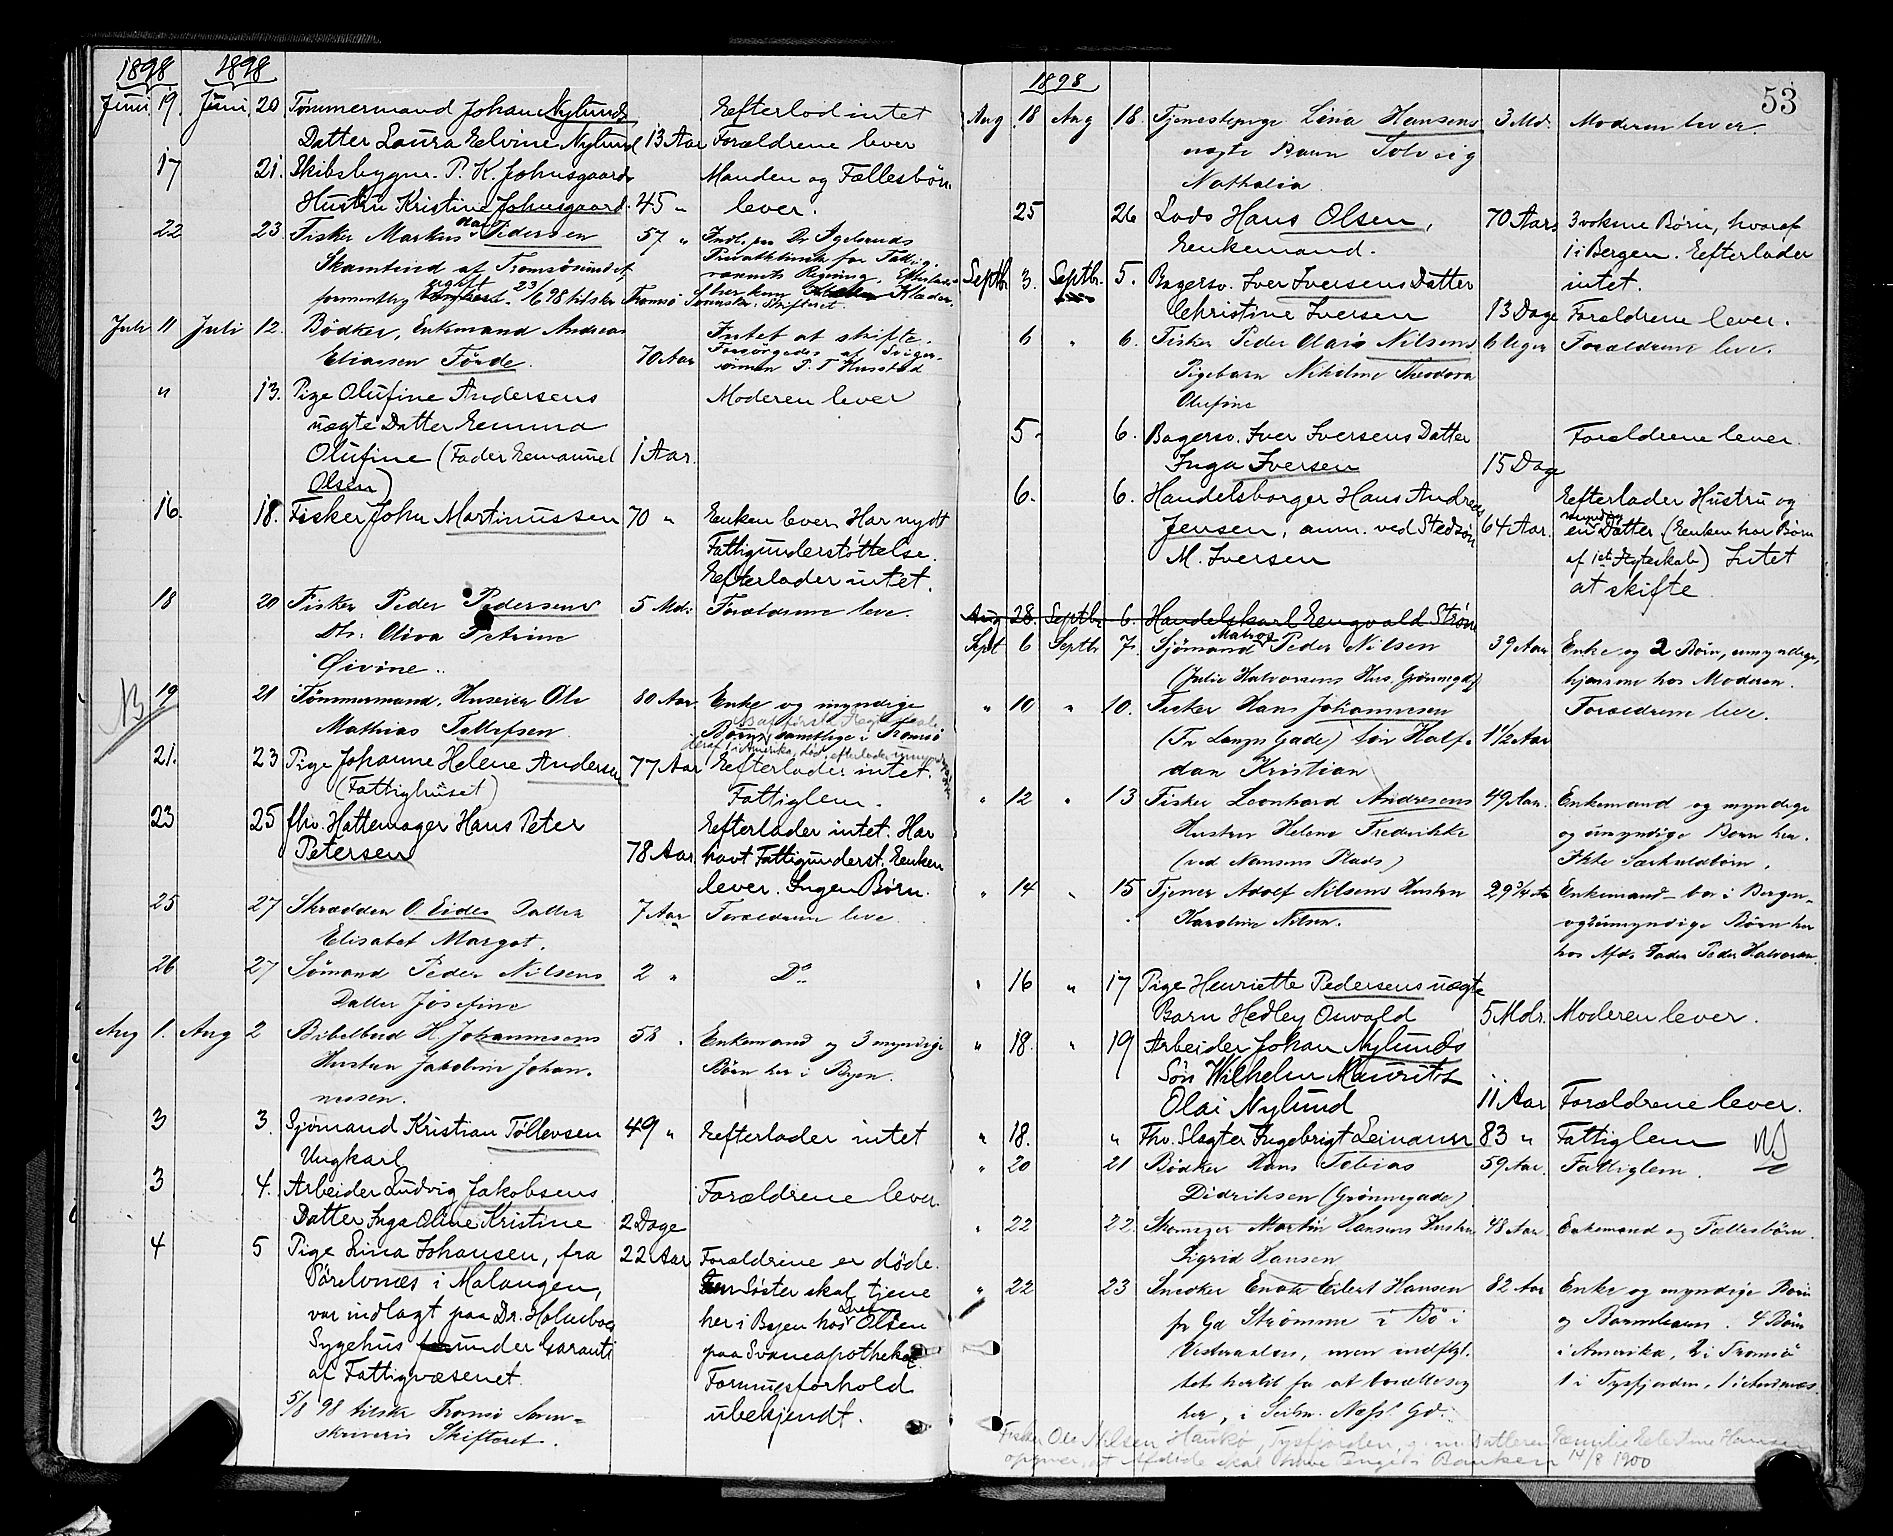 1898 1898
Juni 19. Juni 20 Tømmermand Johan Nylunds Efterlod intet
Datter Laura Elvine Nylund 13 Aar Forældrene lever
17 21. Skibsbygm. P. K. Johnsgaards Manden og Fællesbørn
Hustru Kristine Johnsgaard. 45 " lever.
22 23. Fisker Markus Pedersen 57 "
Skamtind af Tromsøsundet,
formentlig ugift 23/6 98 tilskr. Tromsø Sorenskr. Skifteret.
Juli 11 Juli 12. Bødker, Enkemand Andreas Intet at skifte.
Eliassen Førde. 70 Aar Forsørgedes af Sviger-
sönnen P. T. Husstad
" 13. Pige Olufine Andersens Moderen lever
uægte Datter Emma
Olufine (Fader Emanuel 1 Aar.
Olsen)
16. 18. Fisker John Martinussen 70 " Enken lever. Har nydt
Fattigunderstøttelse.
Efterlader intet.
18 20 Fisker Peder Pedersens 5 Mdr. Forældrene leve.
Dtr. Oliva Petrine
Øivine.
NB 19 21 Tömmermand, Huseier Ole 80 Aar Enke og myndige
Mathias Tollefsen Børn, samtlige i Tromsø
21. 23 Pige Johanne Helene Andersen 77 Aar Efterlader intet.
(Fattighuset) Fattiglem.
23 25 fhv. Hattemager Hans Peter Efterlader intet. Har
Petersen 78 Aar havt Fattigunderst. Enken
lever. Ingen Børn.
25 27 Skrædder O. Eides Datter 7 Aar Forældrene leve
Elisabet Margot.
26 27 Sømand Peder Nilsens 2 " Do.
Datter Josefine
Aug 1. Aug 2 Bibelbud H. Johannesens 58 " Enkemand og 3 myndige
Hustru Jakobine Johan- Børn her i Byen.
nessen.
3 3. Sjømand Kristian Tøllevsen 49 " Efterlader intet
Ungkarl
3 4. Arbeider Ludvig Jakobsens Forældrene lever.
Datter Inga Oline Kristine 2 Dage
4 5 Pige Lina Johansen, fra 22 Aar Forældrene er døde.
i Malangen, Søster skal tjene
var indlagt paa Dr. Holmboes her i Byen hos Olsen
Sygehus under Garanti paa Svaneapotheket
af Fattigvæsenet. Formuesforhold
5/8 98 tilskr Tromsø Soren- ubekjendt.
skriveris Skifteret.
53
1898
Aug 18 Aug 18. Tjenestepige Lina Hansens 3 Md. Moderen lever.
uægte Barn Solveig
Nathalia.
25 26 Lods Hans Olsen, 70 Aar 3 voksne Børn, hvoraf
Enkemand. 1 i Bergen. Efterlader
Septb. 3. Septbr. 5. Bagersv. Iver Iversens Datter intet.
Christine Iversen 13 Dage Forældrene lever.
6 " 6. Fisker Peder Olai Nilsens 6 Uger Forældrene leve.
Pigebarn Nikoline Theodora
Olufine
5. 6. Bagersv. Iver Iversens Datter Forældrene lever.
Inga Iversen 15 Dage
6. 6. Handelsborger Hans Andreas Efterlader Hustru og
Jensen, anm. ved Stedsøn 64 Aar. en myndig Datter (Enken har Børn
M. Iversen af 1ste Ægteskab) Intet
at skifte.
Aug 28. Septbr 6. Handelskarl Engvald Strøm
Sept 6 Septbr 7. Sjømand Matros Peder Nilsen 39 Aar Enke og 2 Børn, umyndige,
(Julie Halvorsens Hus, Grønnegd) hjemme hos Moderen.
" 10 " 10. Fisker Hans Johannesen Forældrene leve.
(Fr. Langes Gade) Søn Half- 1 1/2 Aar
dan Kristian
" 12 " 13 Fisker Leonhard Andresens 49 Aar. Enkemand og myndige
Hustru Helene Fredrikke og umyndige Børn her.
(ved Nansens Plads) Ikke Særkuldbørn.
" 14 " 15 Tjener Adolf Nilsens Hustru 29 3/4 Aar Enkemand bor i Bergen
Karoline Nilsen. og umyndige Børn her
hos Afd. Fader Peder Halvorsen.
" 16 " 17 Pige Henriette Pedersens uægte
Barn Hedley Osvald 5 Mdr. Moderen lever.
" 18. " 19 Arbeider Johan Nylunds
Søn Wilhelm Mauritz
Olai Nylund 11 Aar Forældrene lever.
" 18. " Fhv. Slagter Ingebrigt Leinansen 83 " Fattiglem NB
" 20 21 Bødker Hans Tobias 59 Aar. Fattiglem.
Didriksen (Grønnegade)
" 22 22. Skomager Martin Hansens Hustru 48 Aar Enkemand og Fællesbørn.
Sigrid Hansen
" 22 23 Snedker Enok Eilert Hansen 82 Aar Enke og myndige Børn
fr Gd Strømme i Bø i og Barnebarn. 4 Børn
Vesteraalen, men indflyt- i Amerika, 2 i Tromsø
tet hertil for at bosætte sig 1 i Tysfjorden,
her,
Fisker Ole Nilsen, Haukø, Tysfjorden, g. m. Datteren Emilie Hansen
opgiver, at Afdøde skal have Penge i Banken 14/8 1900